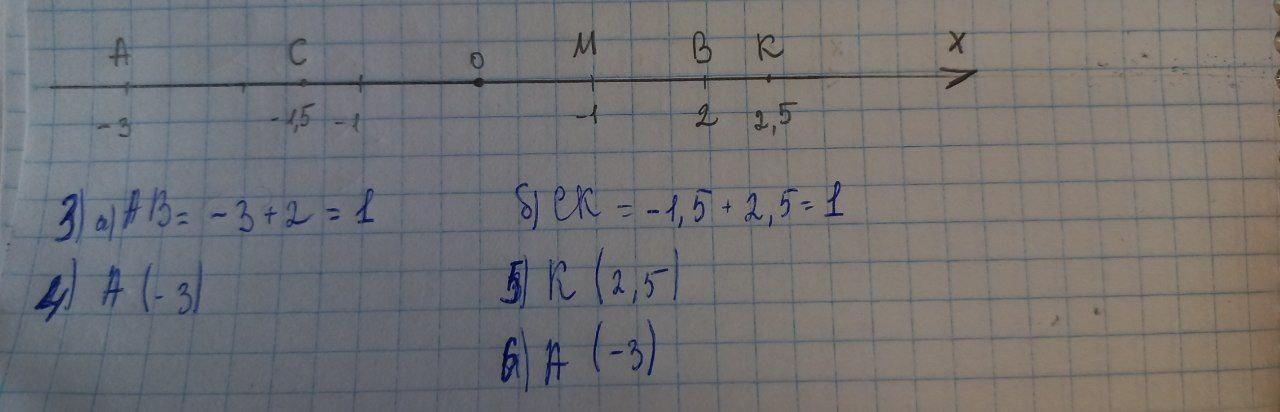 А С О М В К X
-3 -1,5 -1 -1 2 2,5
3) а) АВ = -3+2 = 1 б) СК = -1,5 + 2,5 = 1
4) А (-3) 5) К (2,5)
6) А (-3)